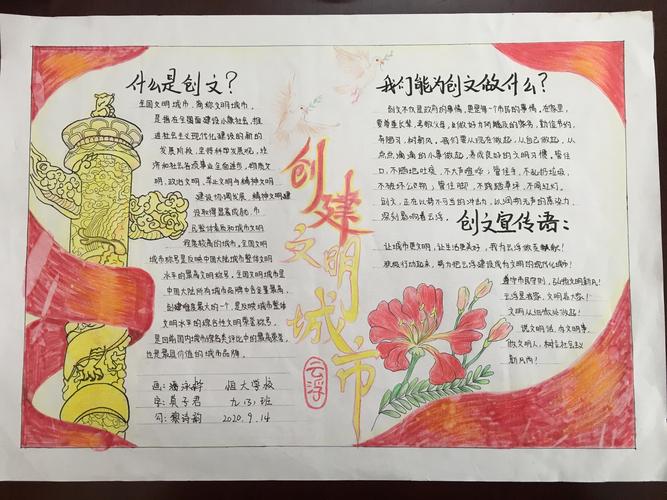 什么是创文？
全国文明城市，简称文明城市，
是指在全面建设小康社会，推
进社会主义现代化建设的新的
发展阶段，坚持科学发展观，经
济和社会各项事业全面进步，物质文
明，政治文明与精神文明
建设协调发展，精神文明建
设取得显著成就，市
民整体素质和城市文明
程度较高的城市。全国文明
城市称号是反映中国大陆城市整体文明
水平的最高文明称号。全国文明城市是
中国大陆所有城市品牌中含金量最高、
创建难度最大的一个，是反映城市整体
文明水平的综合性文明荣誉称号，
是目前国内城市综合类评比中的最高荣誉，
也是最具价值的城市品牌。
画：潘泳妤 恒大学校
字：莫子君 九（3）班
勾：黎诗韵 2020.9.14
创建文明城市
云浮
我们能为创文做什么？
创文不仅是政府的事情，更是每一个市民的事情。在家里，
要尊重长辈，孝敬父母，做好力所能及的家务，勤俭节约，
革陋习，树新风。我们要从现在做起，从自己做起，从
点点滴滴的小事做起，养成良好的文明习惯。管住
口，不随地吐痰，不大声喧哗；管住手，不乱扔垃圾，
不破坏公物；管住脚，不践踏草坪，不闯红灯。
创文，正在以势不可当的冲击力，以润物无声的感染力
深刻影响着云浮。
创文宣传语：
让城市更文明，让生活更美好，我为云浮做贡献！
积极行动起来，努力把云浮建设成为文明的现代化城市！
遵守市民守则，弘扬文明新风！
云浮是我家，文明靠大家！
文明从细微处做起！
说文明话，办文明事，
做文明人，树立社会主义
新风尚！